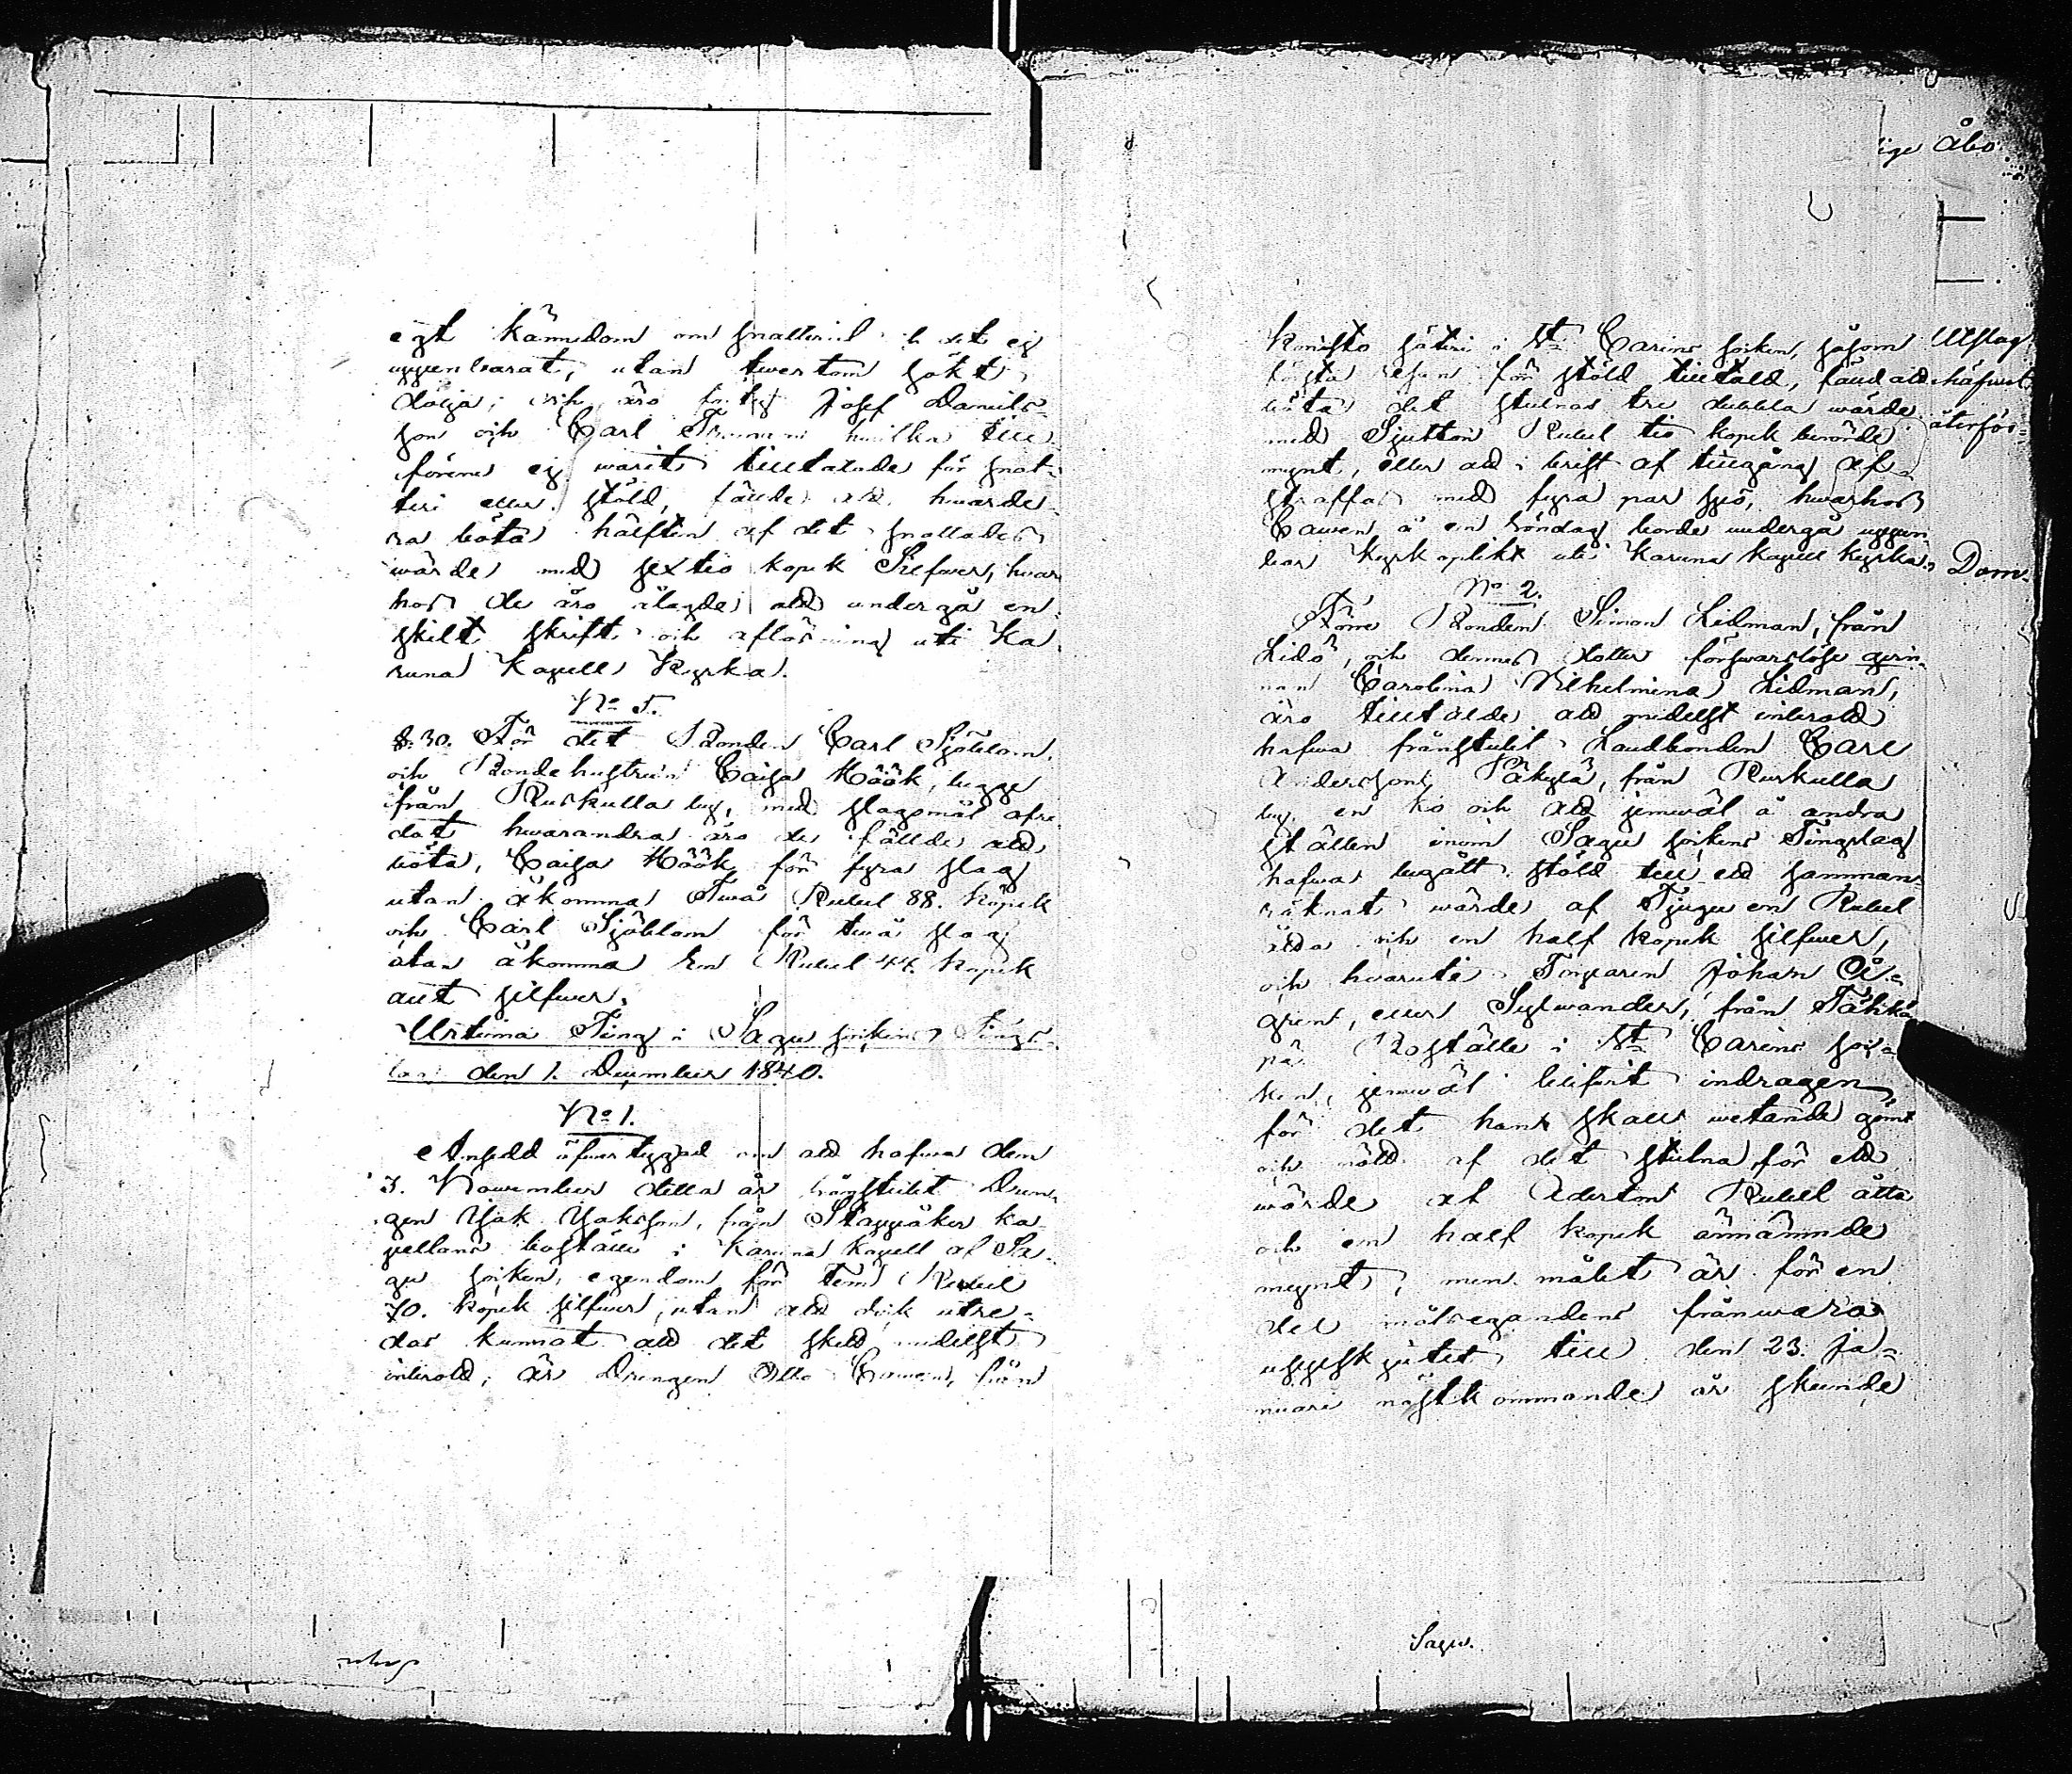 egt kännedom om snatteriet & det ej
uppenbarat, utan twertom sökt
dölja; och äro Josef Daniels-
son och Carl hwilka till
förene ej warit tilltalade för snat-
teri eller stöld, fällde att hwarde-
ra böta hälften af det snattades
wärde med sextio kopek Silfwer, hwar
hos de äro ålagde att undergå en-
skilt skrift och aflösning uti Ka
runa Kapell Kyrka.
No 5.
§.30. För det Bonden Carl Sjöblom,
och Bondehustrun Caisa Höök, begge
från Ruskulla by, med slagsmål ofre
dat hwarandra äro de fällde att
böta, Caisa Höök för fyra slag
utan åkomma Twå Rubel 88. kopek
och Carl Sjöblom för twå slag
utan åkomma En Rubel 44. kopek
allt silfwer.
Urtima Ting i Sagu sockens Tings-
lag den 1. December 1840.
No 1.
Angeld öfwertygad om att hafwa den
3. November detta år frånstulit Dren-
gen Isak Isaksson, från Stappåker ka-
pellans boställe i Karuna Kapell af Sa-
gu socken, egendom för fem Rubel
70. kopek silfwer, utan att dock utre-
das kunnat att det skedt medelst
inbrott, är Drengen Otto Cawen, från
Kuristo säteri i St Carins socken, såsom
första resan för stöld tilltald, fälld att
böta det stulnas tre dubbla wärde
med Sjutton Rubel tio kopek berörde
mynt, eller att i brist af tillgång af-
straffas med fyra par spö, hwarhos
Cawen å en Söndag borde undergå uppen-
bar kyrkoplikt uti Karuna kapell kyrka.
No 2.
Förre Bonden Simon Lidman, från
Lidö, och dennes dotter försvarslöse qvin-
nan Carolina Wilhelmina Lidman,
äro tilltalde att medelst inbrott
hafwa frånstulit Landbonden Carl
Andersson Päkylä, från Ruskulla
by, en ko och att jemwäl å andra
ställen inom Sagu sockens Tingslag
hafwa begått stöld till ett samman-
räknat wärde af Tjugu en Rubel
åtta och en half kopek silfwer,
och hwaruti Torparen Johan Ö-
gren, eller Sylwander, från Tähkä-
pä Boställe i St Carins soc-
ken, jemwäl blifwit indragen
för det han skall wetande gömt
och nått af det stulna för ett
wärde af Aderton Rubel åtta
och en half kopek ännämnde
mynt; men målet är för en
del målsegandens frånwara
uppskjutet till den 23. Ja-
nuari nästkommande år skeende
Utslag
häfwet
återför-
Dom.
ige Åbo
Sagu.